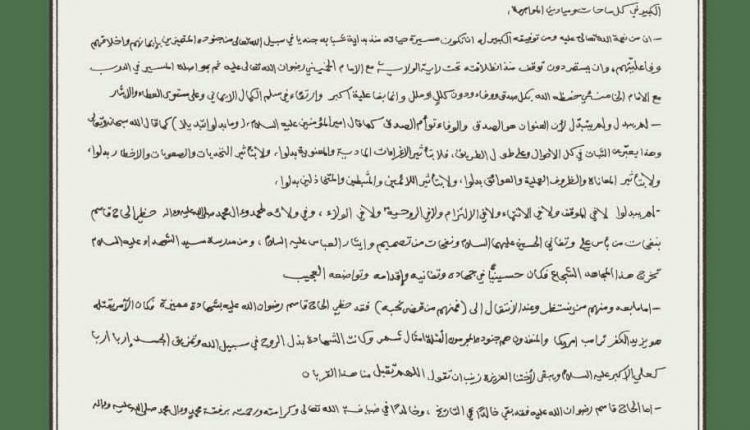 الكبير في كل ساحات وميادين المواجهة.
– ان من نعمة الله تعالى عليه ومن توفيقه الكبير له ان تكون مسيرة حياته منذ بداية شبابه جنديا في سبيل الله تعالى من جنوده المتميزين بإيمانهم واخلاقهم
وفاعليتهم، وان يستمر دون توقف منذ انطلاقته تحت راية الولاية مع الامام الخميني رضوان الله تعالى عليه ثم بمواصلة المسير في الدرب
مع الامام الخامنئي حفظه الله بكل صدق ووفاء ودون كلل او ملل وانما بفاعلية اكبر وارتقاء في سلم الكمال الإيماني وعلى مستوى العطاء والايثار
– لم يبدل ولم يتبدل لأن العنوان هو الصدق والوفاء توأم الصدق كما قال امير المؤمنين عليه السلام، (وما بدلوا تبديلا) كما قال الله سبحانه وتعالى
وهذا يعبر عن الثبات في كل الاحوال وعلى طول الطريق، فلا بتأثير الإغراءات المادية والمعنوية بدلوا، ولا بتأثير التحديات والصعوبات والاخطار بدلوا،
ولا بتأثير المعاناة والظروف الصعبة والعوائق بدلوا، ولا بتأثير اللائمين والمثبطين والمتخاذلين بدلوا.
– لم يبدلوا لا في الموقف ولا في الانتماء ولا في الالتزام ولا في الروحية ولا في الولاء، وفي ولائه لمحمد وآل محمد صلى الله عليه وآله حظي الحاج قاسم
بنفحات من بأس علي وتفاني الحسين عليهما السلام ونفحات من تصميم وايثار العباس عليه السلام، ومن مدرسة سيد الشهداء عليه السلام
تخرج هذا المجاهد الشجاع فكان حسينيًّا في جهاده وتفانيه وإقدامه وتواضعه العجيب
– اما ما بعد ومنهم من ينتظر وعند الانتقال الى (فمنهم من قضى نحبه) فقد حظي الحاج قاسم رضوان الله عليه بشهادة مميزة فكان الآمر بقتله
هو يزيد الكفر ترامب امريكا والمنفذون هم جنوده المجرمون القتلة امثال شمر وكانت الشهادة بذل الروح في سبيل الله وتمزيق الجسد إربا إربا
كعلي الاكبر عليه السلام وبقي لأختنا العزيزة زينب ان تقول اللهم تقبل منا هذا القربان
– اما الحاج قاسم رضوان الله عليه فقد بقي خالدًا في التاريخ، وخالدًا في ضيافة الله تعالى وكرامته ورحمته برفقة محمد وآل محمد صلى الله عليه وآله